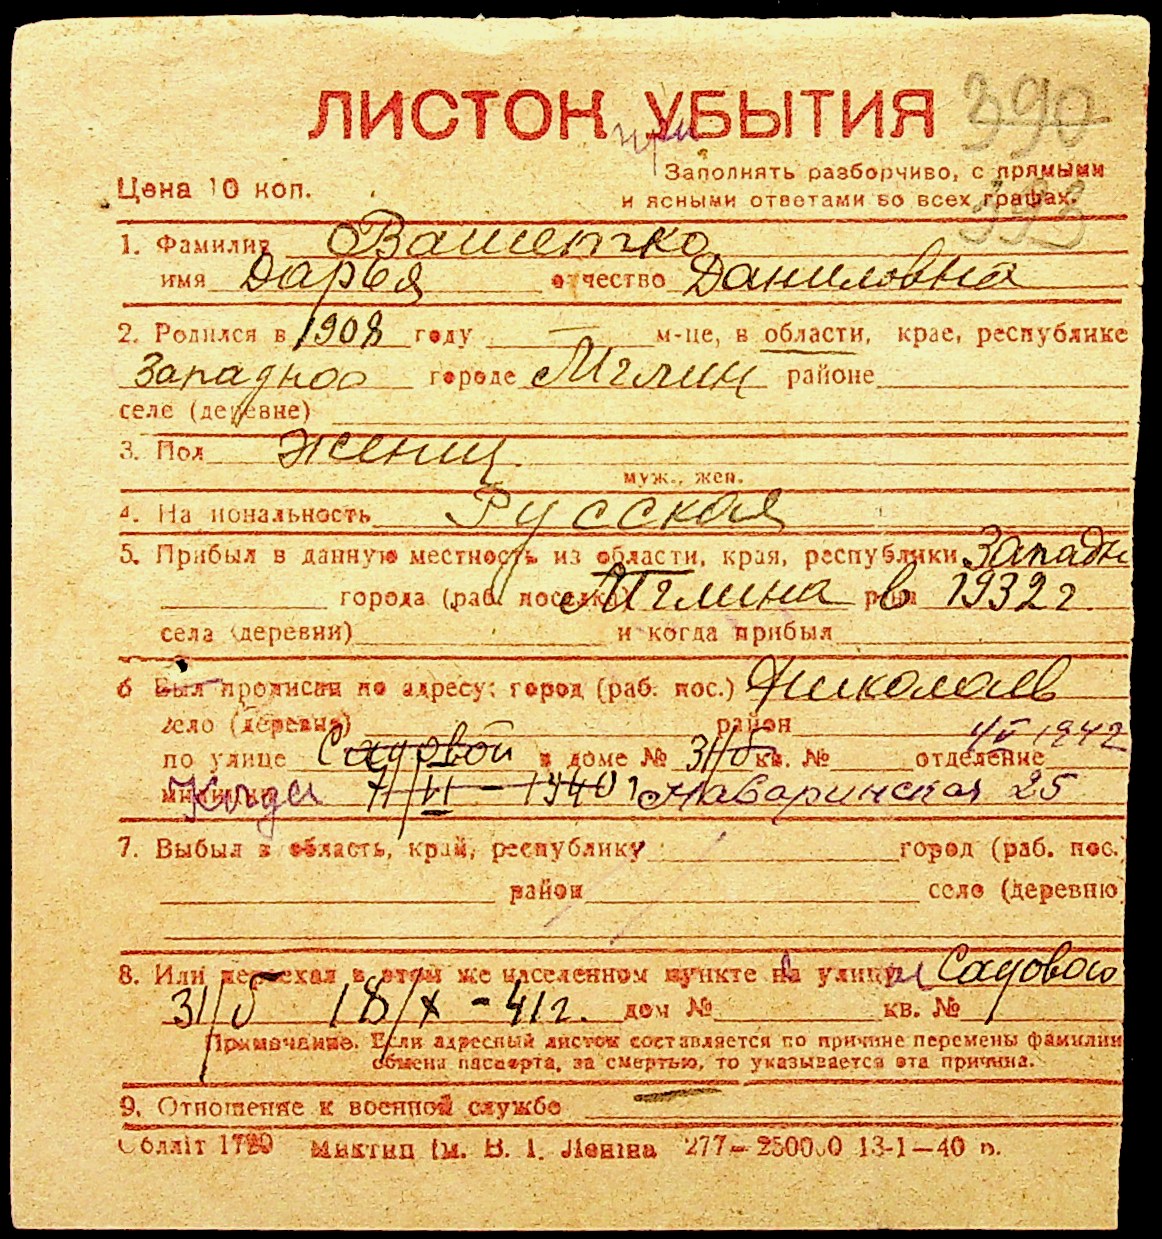 ЛИСТОК УБЫТИЯ 390
при
Цена 10 коп. Заполнять разборчиво, с прямыми
и ясными ответами во всех графах. 393
1. Фамилия Ващенко
имя Дарья отчество Даниловна
2. Родился в 1908 году — м-це, в области, крае, республике
Западной городе Мглин районе
селе (деревне)
3. Пол женщ.
муж., жен.
4. Национальность Русская
5. Прибыл в данную местность из области, края, республики Западн
города (раб. поселка) Мглина в р-на 1932 г.
села (деревни) и когда прибыл
6 Был прописан по адресу: город (раб. пос.) Николаев
село (деревня) район
по улице Садовой в доме № 31/б кв. № отделение 1942
милиции Когда 1940 г Наваринская 25
7. Выбыл в область, край, республику город (раб. пос.)
район село (деревню)
8. Или переехал в этом же населенном пункте на улицу Садовою
31/б 18/X - 41 г. дом № кв. №
Примечание. Если адресный листок составляется по причине перемены фамилии
обмена паспорта, за смертью, то указывается эта причина.
9. Отношение к военной службе —
Облліт 1720 Миктип ім. В. І. Леніна 277— 250000 13-1—40 р.